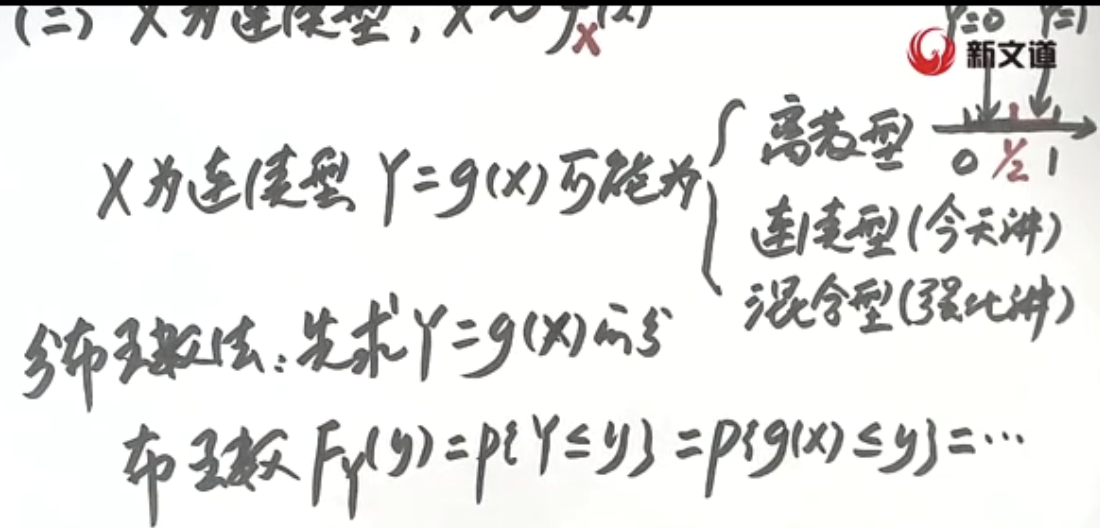 (二) X为连续型, X~f_X(x)
Y=0 Y=1
新文道
离散型
0 1/2 1
X为连续型 Y=g(X)可能为
连续型(今天讲)
混合型(强化讲)
分布函数法:先求Y=g(X)的分
布函数 F_Y(y)=P{Y≤y}=P{g(X)≤y}=…